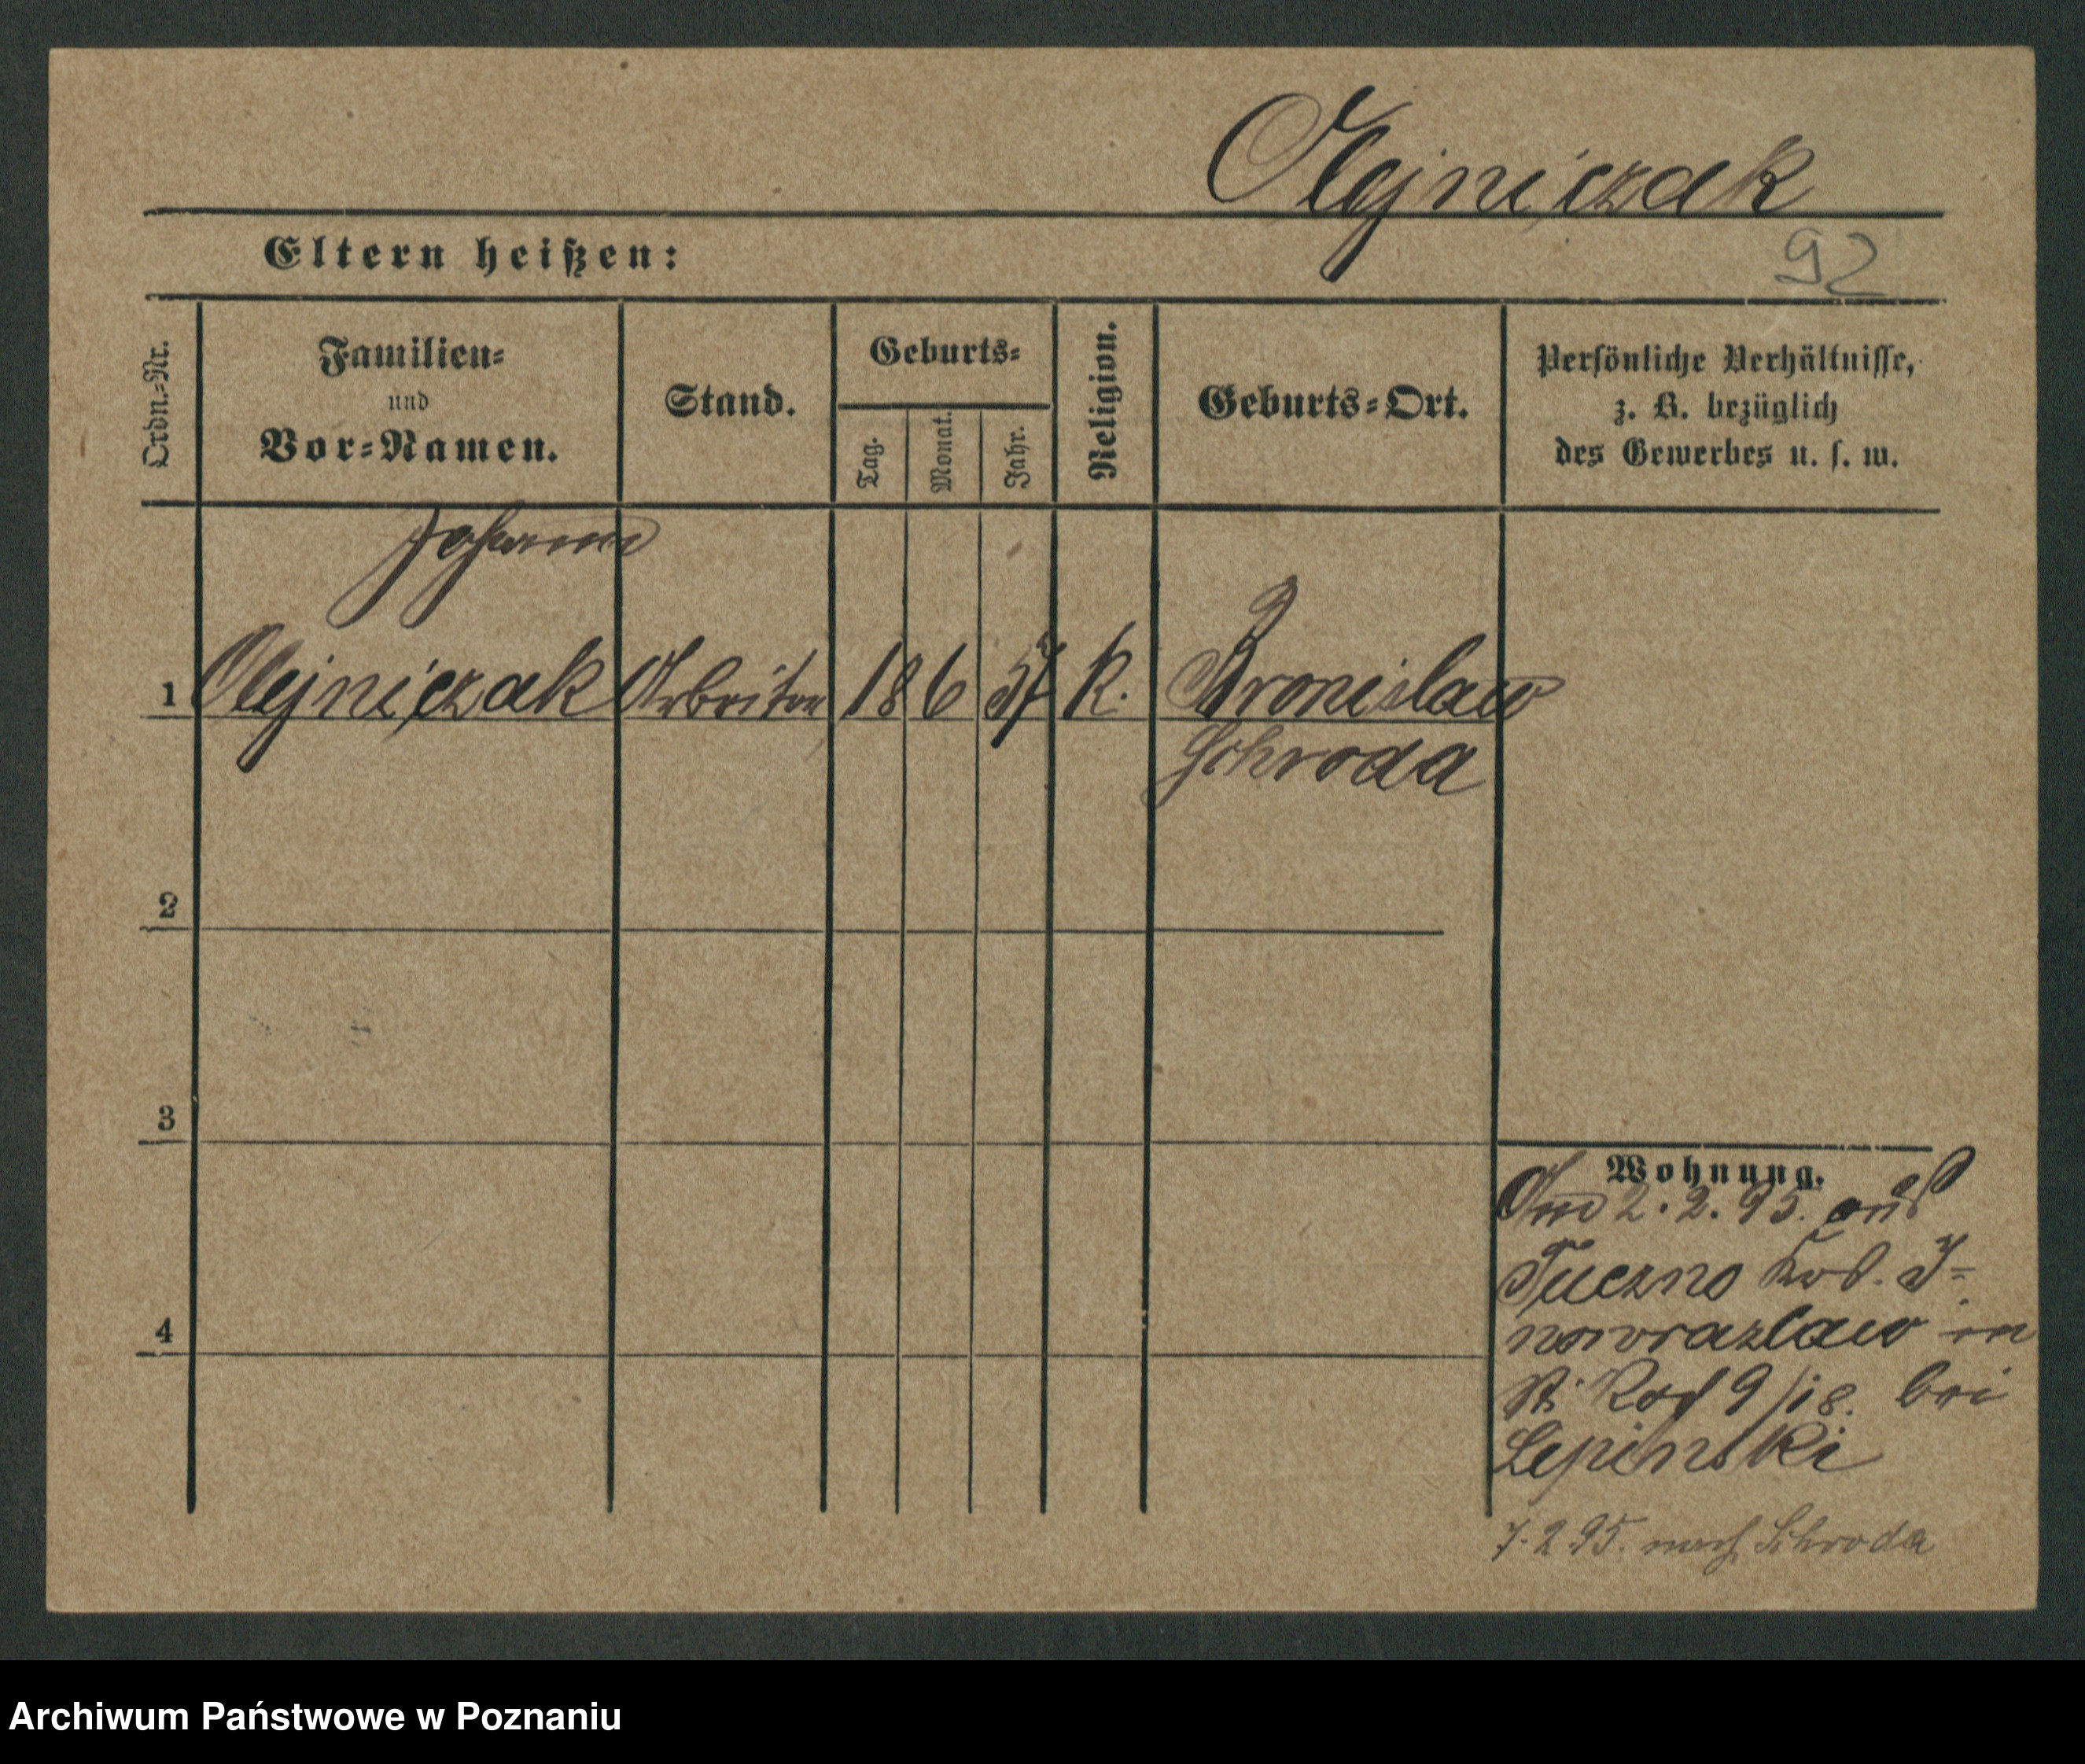 Olejniczak
Eltern heißen:
92
Ordn.-Nr.
Familien-
und
Vor-Namen.
Stand.
Geburts-
Tag.
Monat.
Jahr.
Religion.
Geburts-Ort.
Persönliche Verhältnisse,
z. B. bezüglich
des Gewerbes u. s. w.
Johann
1 Olejniczak Arbeiter 18 6 57 K. Bronislaw
Schroda
2
3
4
Wohnung.
Am 2.2.95. aus
Tuczno Krs. I=
nowrazlaw in
9/18. bei
Lepinski
7.2.95. nach Schroda
Archiwum Państwowe w Poznaniu